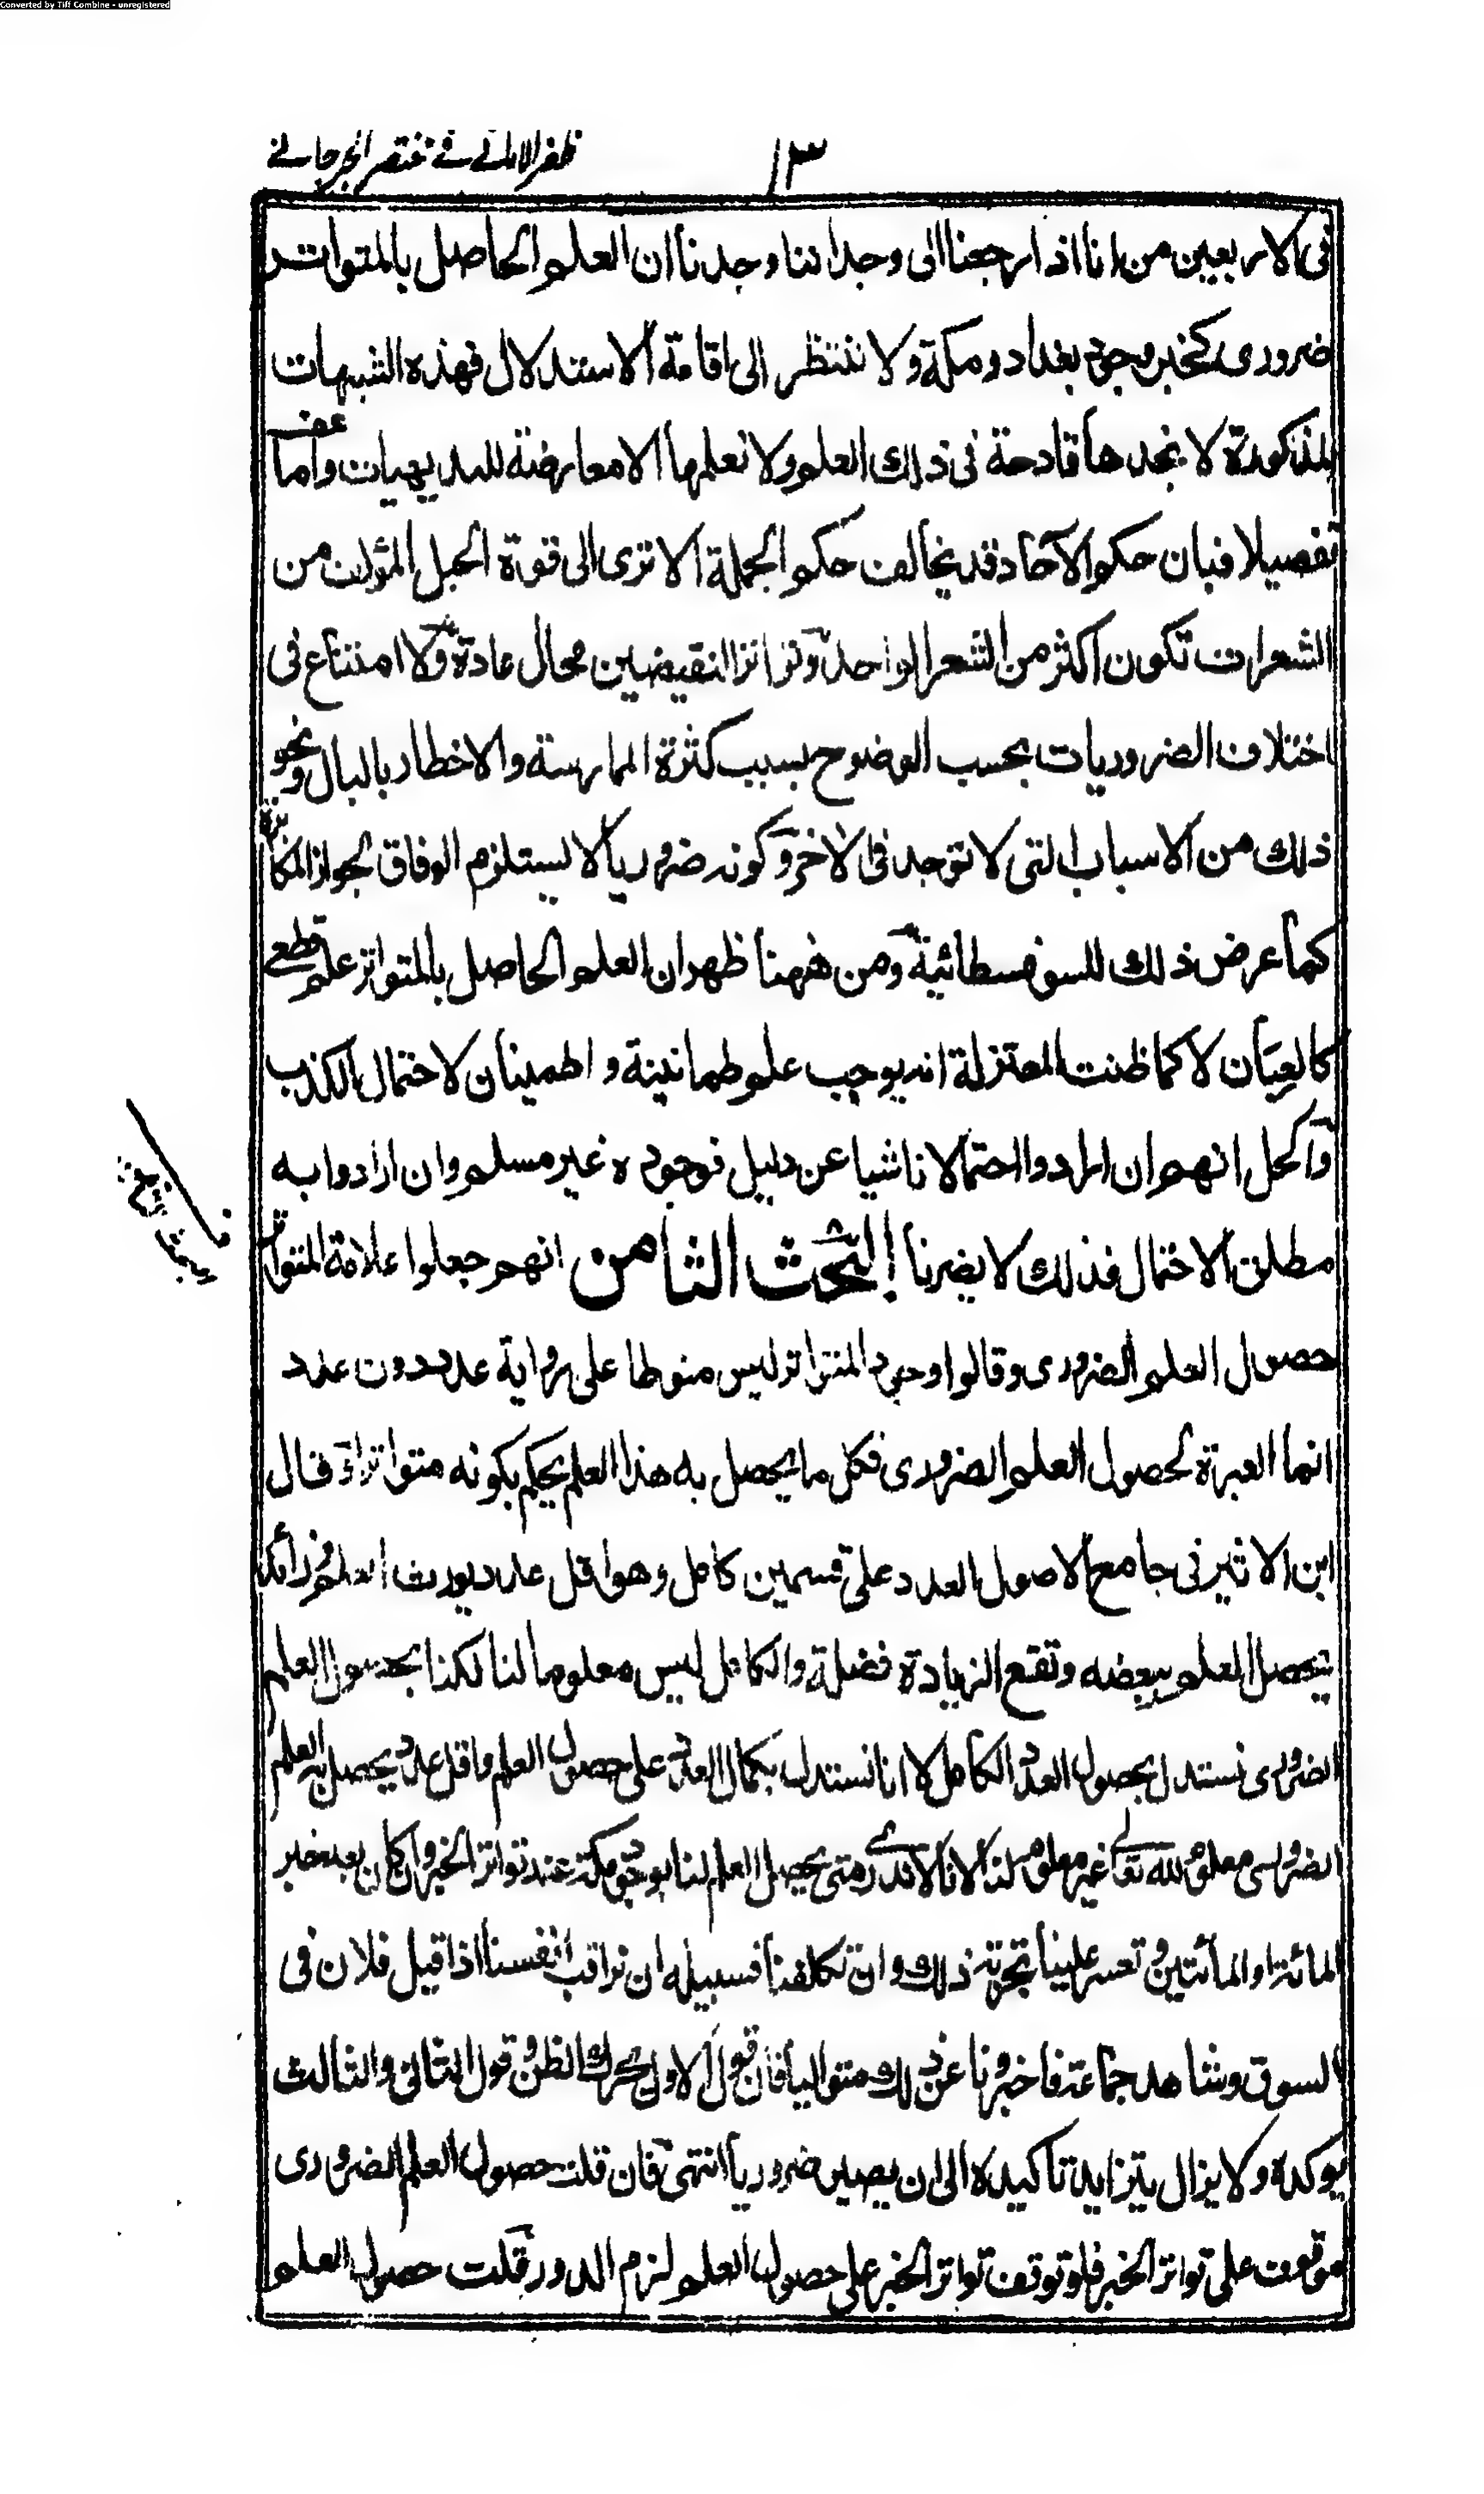 Converted by Tiff Combine - unregistered
١٣
ظفر الامانى فى مختصر الجرجانى
فى الاربعين من انا اذا رجعنا الى وجداننا وجدنا ان العلم الحاصل بالمتواتر
ضرورى كخبر وجود بغداد ومكة ولا ننتظر الى اقامة الاستدلال فهذه الشبهات
المذكورة لا نجدها قادحة فى ذلك العلم ولا نعلمها الا معارضة للبديهيات واما
تفصيلا فبان حكم الآحاد قد يخالف حكم الجملة الا ترى الى قوة الحبل المؤلف من
الشعرات تكون اكثر من الشعر الواحد وتواتر النقيضين محال عادة ولا امتناع فى
اختلاف الضروريات بحسب الوضوح بسبب كثرة الممارسة والاخطار بالبال ونحو
ذلك من الاسباب التى لا توجد فى الاخر وكونه ضروريا لا يستلزم الوفاق لجواز المكابرة
كما عرض ذلك للسوفسطائية ومن ههنا ظهر ان العلم الحاصل بالمتواتر علم قطعى
كالعيان لا كما ظنت المعتزلة انه يوجب علم طمانينة واطمينان لاحتمال الكذب
والحل انهم ان ارادوا احتمالا ناشيا عن دليل فوجوده غير مسلم وان ارادوا به
مطلق الاحتمال فذلك لا يضرنا البحث الثامن انهم جعلوا علامة المتواتر
حصول العلم الضرورى وقالوا وجود المتواتر ليس منوطا على رواية عدد دون عدد
انما العبرة لحصول العلم الضرورى فكل ما يحصل به هذا العلم يحكم بكونه متواترا وقال
ابن الاثير فى جامع الاصول العدد على قسمين كامل وهو اقل عدد يورث العلم وزائد
يحصل العلم ببعضه وتقع الزيادة فضلة والكامل ليس معلوما لنا لكنا بحصول العلم
الضرورى نستدل بحصول العدد الكامل لا انا نستدل بكمال العدد على حصول العلم واقل عدد يحصل به العلم
الضرورى معلوم لله تعالى غير معلوم لنا لانا لا ندرى متى يحصل العلم لنا بوجود مكة عند تواتر الخبر وان كان بعد خبر
المائة او المأتين وتعسر علينا تجربة ذلك وان تكلفنا فسبيله ان نراقب انفسنا اذا قيل فلان فى
السوق وشاهد جماعة فاخبرونا عن ذلك متواليا فان قول الاول يحرك الظن وقول الثانى والثالث
يوكده ولا يزال يتزايد تاكيده الى ان يصير ضروريا انتهى فان قلت حصول العلم الضرورى
موقوف على تواتر الخبر فلو توقف تواتر الخبر على حصول العلم لزم الدور قلت حصول العلم